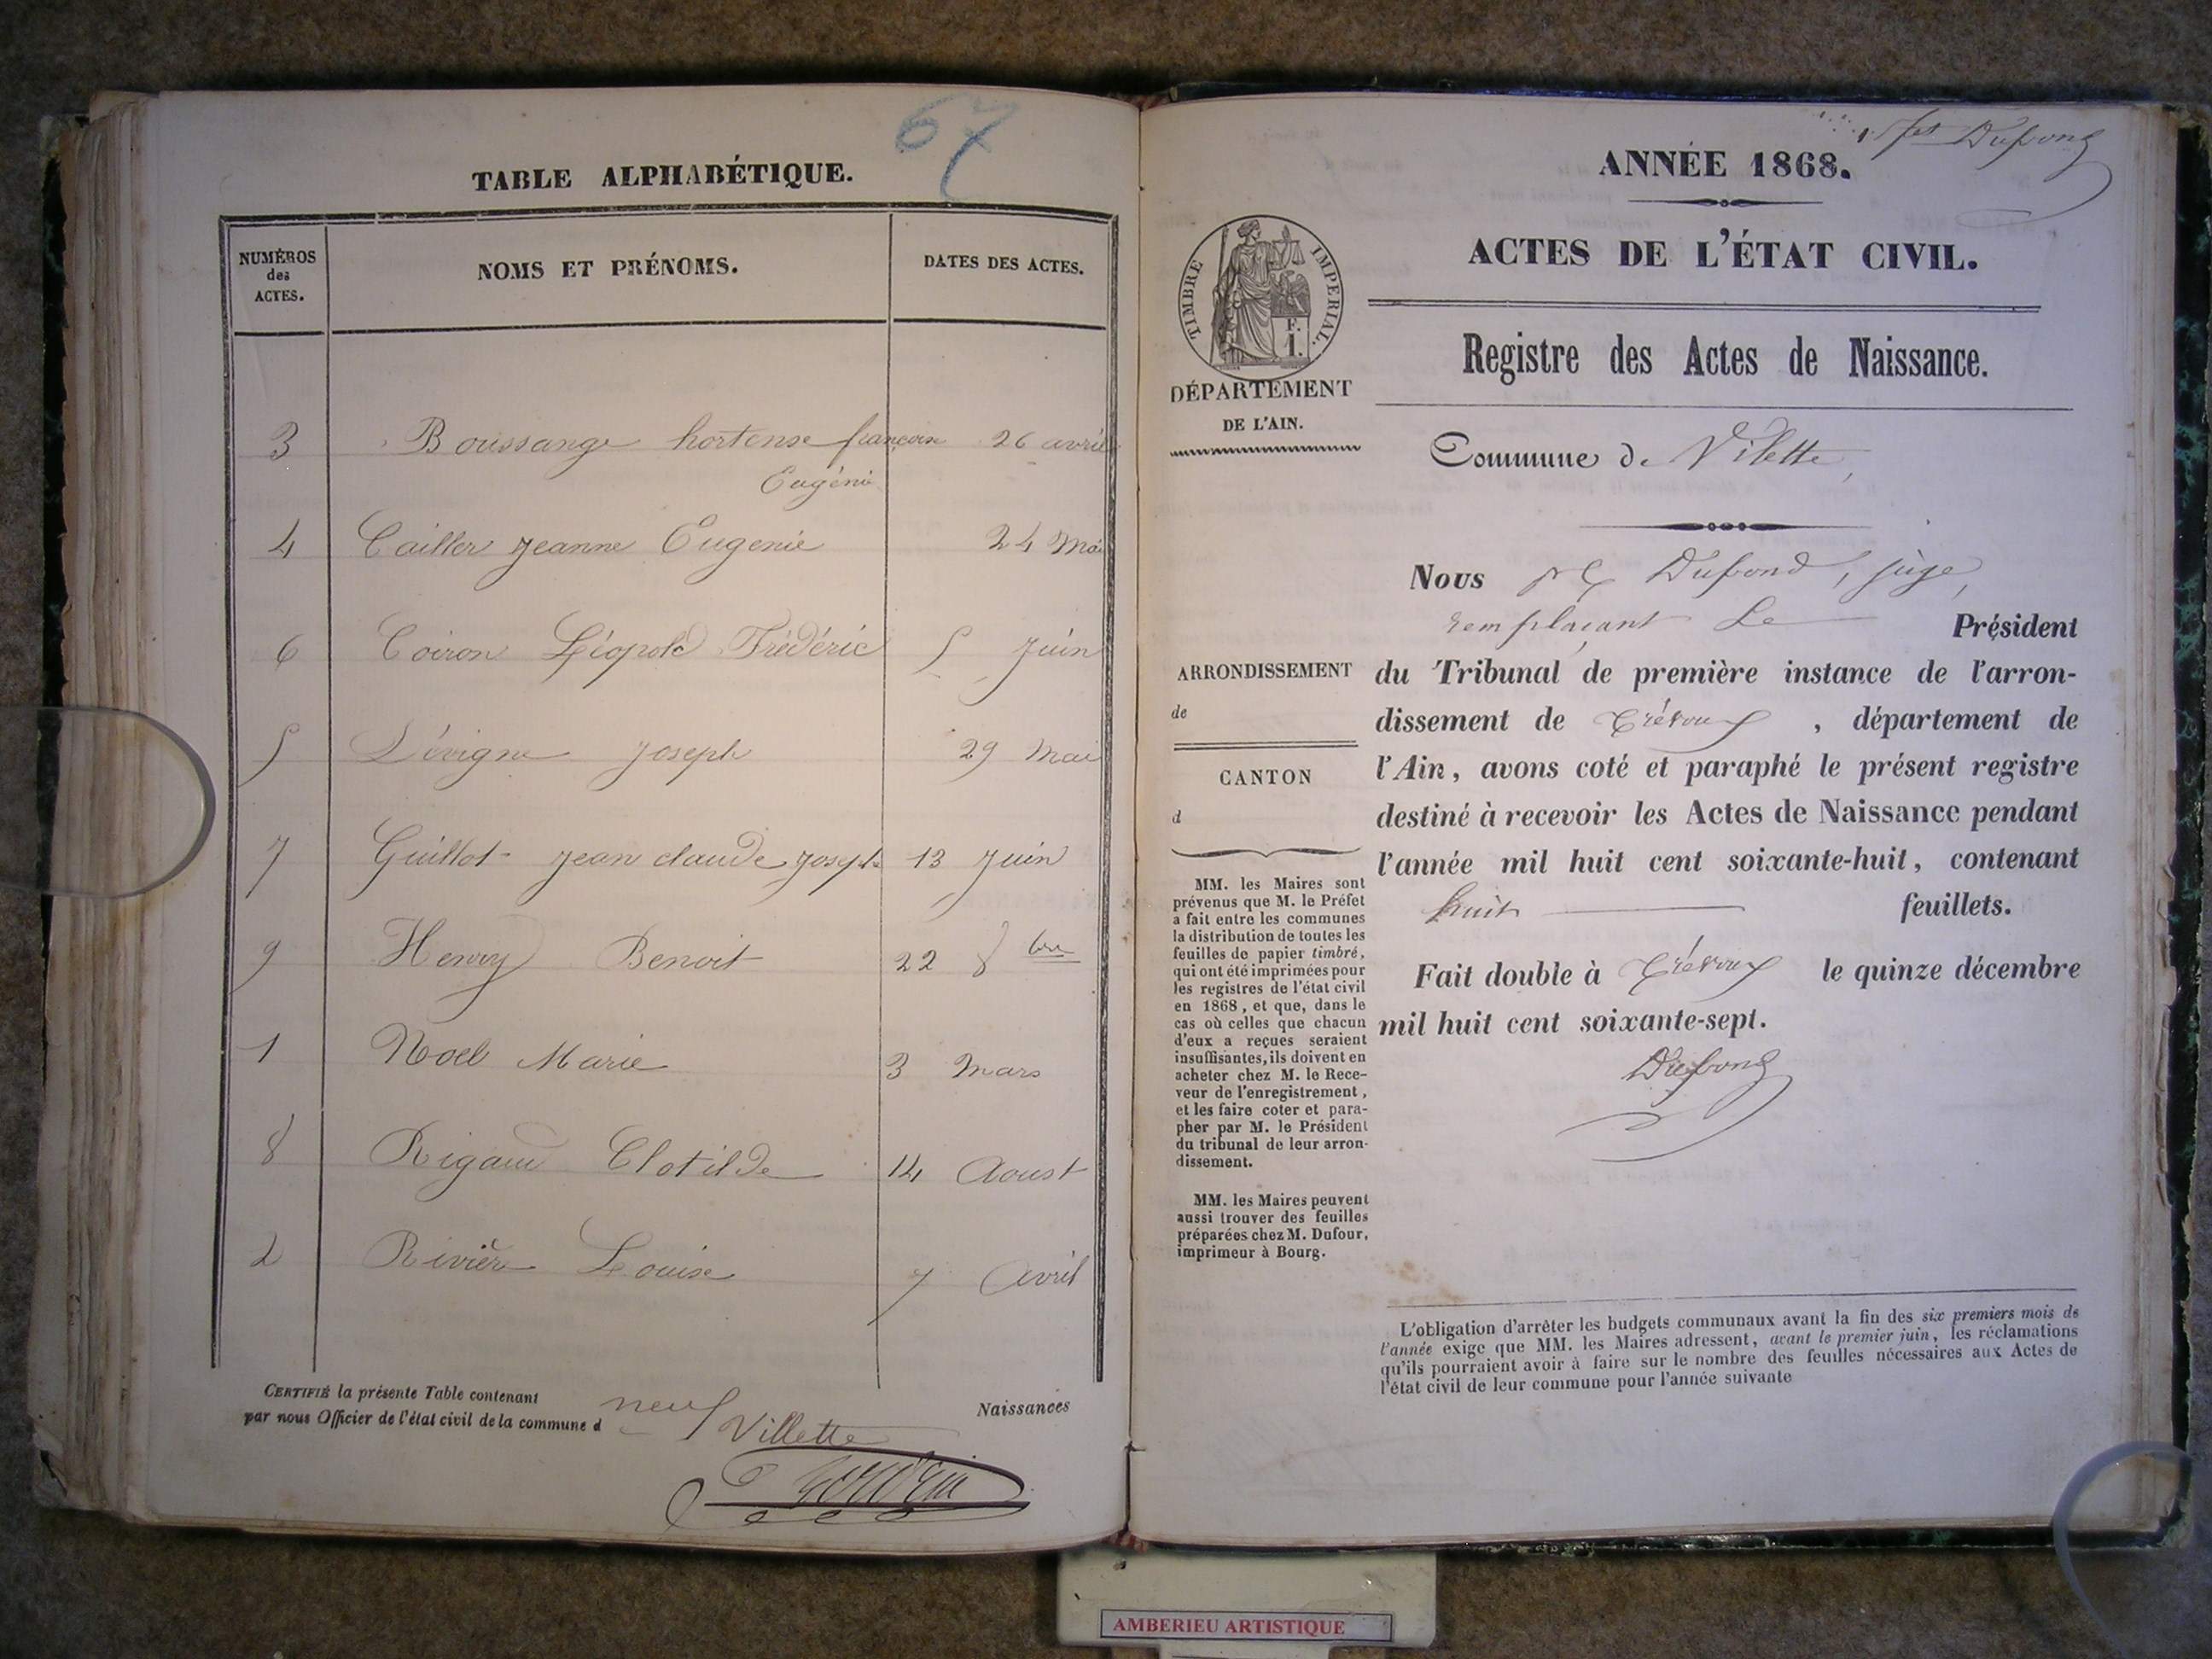 67
TABLE ALPHABÉTIQUE.
NUMÉROS
des
ACTES.
NOMS ET PRÉNOMS.
DATES DES ACTES.
3 Boussange hortense françoise 26 avril
Eugénie
4 Cailler Jeanne Eugenie 24 Mai
6 Coiron Léopold Frédéric 5 Juin
5 Lévigne Joseph 29 Mai
7 Guillot Jean claude Joseph 13 Juin
9 Henry Benoit 22 8bre
1 Noel Marie 3 Mars
8 Rigaud Clotilde 14 Aoust
2 Rivière Louise 7 Avril
CERTIFIÉ la présente Table contenant neuf Naissances
par nous Officier de l'état civil de la commune d Villette
Dupond
ANNÉE 1868.
TIMBRE IMPERIAL.
F.
1.
ACTES DE L'ÉTAT CIVIL.
Registre des Actes de Naissance.
DÉPARTEMENT
DE L'AIN.
Commune de Vilette
ARRONDISSEMENT
de
CANTON
d
MM. les Maires sont
prévenus que M. le Préfet
a fait entre les communes
la distribution de toutes les
feuilles de papier timbré,
qui ont été imprimées pour
les registres de l'état civil
en 1868, et que, dans le
cas où celles que chacun
d'eux a reçues seraient
insuffisantes, ils doivent en
acheter chez M. le Rece-
veur de l'enregistrement,
et les faire coter et para-
pher par M. le Président
du tribunal de leur arron-
dissement.
MM. les Maires peuvent
aussi trouver des feuilles
préparées chez M. Dufour,
imprimeur à Bourg.
Nous Dupond, juge,
remplaçant Le Président
du Tribunal de première instance de l'arron-
dissement de Trévoux, département de
l'Ain, avons coté et paraphé le présent registre
destiné à recevoir les Actes de Naissance pendant
l'année mil huit cent soixante-huit, contenant
huit feuillets.
Fait double à Trévoux le quinze décembre
mil huit cent soixante-sept.
Dupond
L'obligation d'arrêter les budgets communaux avant la fin des six premiers mois de
l'année exige que MM. les Maires adressent, avant le premier juin, les réclamations
qu'ils pourraient avoir à faire sur le nombre des feuilles nécessaires aux Actes de
l'état civil de leur commune pour l'année suivante
AMBERIEU ARTISTIQUE